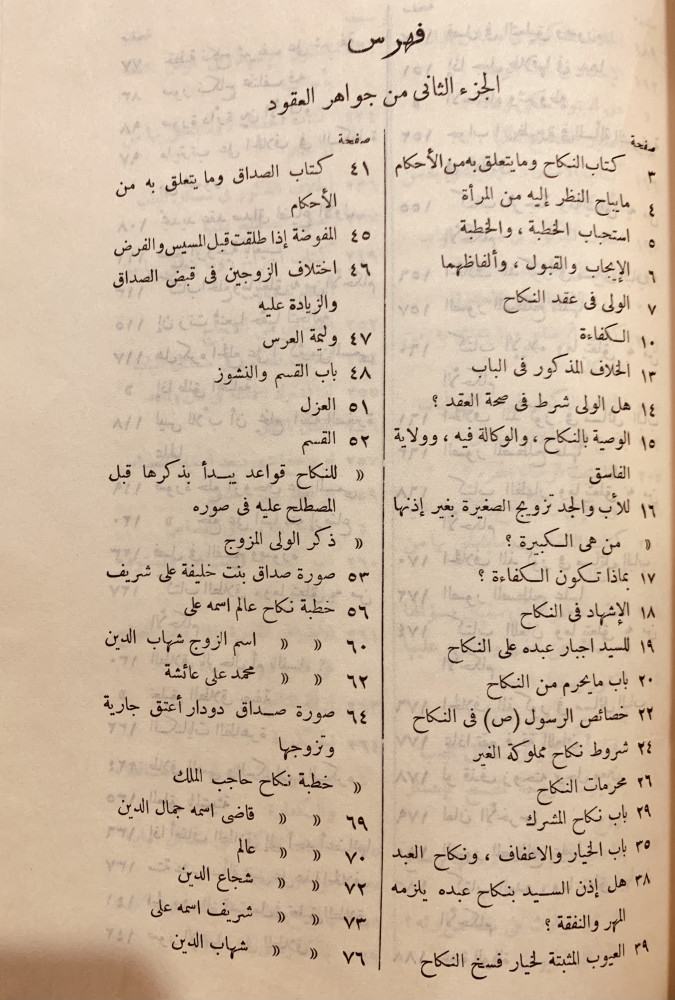 فهرس
الجزء الثانى من جواهر العقود
صفحة
٣ كتاب النكاح وما يتعلق به من الأحكام
٤ مايباح النظر إليه من المرأة
٥ استحباب الخطبة ، والخطبة
٦ الإيجاب والقبول ، وألفاظهما
٧ الولى فى عقد النكاح
١٠ الكفاءة
١٣ الخلاف المذكور فى الباب
١٤ هل الولى شرط فى صحة العقد ؟
١٥ الوصية بالنكاح ، والوكالة فيه ، وولاية
الفاسق
١٦ للأب والجد تزويج الصغيرة بغير إذنها
« من هى الكبيرة ؟
١٧ بماذا تكون الكفاءة ؟
١٨ الإشهاد فى النكاح
١٩ للسيد اجبار عبده على النكاح
٢٠ باب مايحرم من النكاح
٢٢ خصائص الرسول (ص) فى النكاح
٢٤ شروط نكاح مملوكة الغير
٢٦ محرمات النكاح
٢٩ باب نكاح المشرك
٣٥ باب الخيار والاعفاف ، ونكاح العبد
٣٨ هل إذن السيد بنكاح عبده يلزمه
المهر والنفقة ؟
٣٩ العيوب المثبتة لخيار فسخ النكاح
صفحة
٤١ كتاب الصداق وما يتعلق به من
الأحكام
٤٥ المفوضة إذا طلقت قبل المسيس والفرض
٤٦ اختلاف الزوجين فى قبض الصداق
والزيادة عليه
٤٧ وليمة العرس
٤٨ باب القسم والنشوز
٥١ العزل
٥٢ القسم
« للنكاح قواعد يبدأ بذكرها قبل
المصطلح عليه فى صوره
« ذكر الولى المزوج
٥٣ صورة صداق بنت خليفة على شريف
٥٦ خطبة نكاح عالم اسمه على
٦٠ « « اسم الزوج شهاب الدين
٦٢ « « محمد على عائشة
٦٤ صورة صداق دودار أعتق جارية
وتزوجها
« خطبة نكاح حاجب الملك
٦٩ « « قاضى اسمه جمال الدين
٧٠ « « عالم
٧٢ « « شجاع الدين
٧٣ « « شريف اسمه على
٧٦ « « شهاب الدين